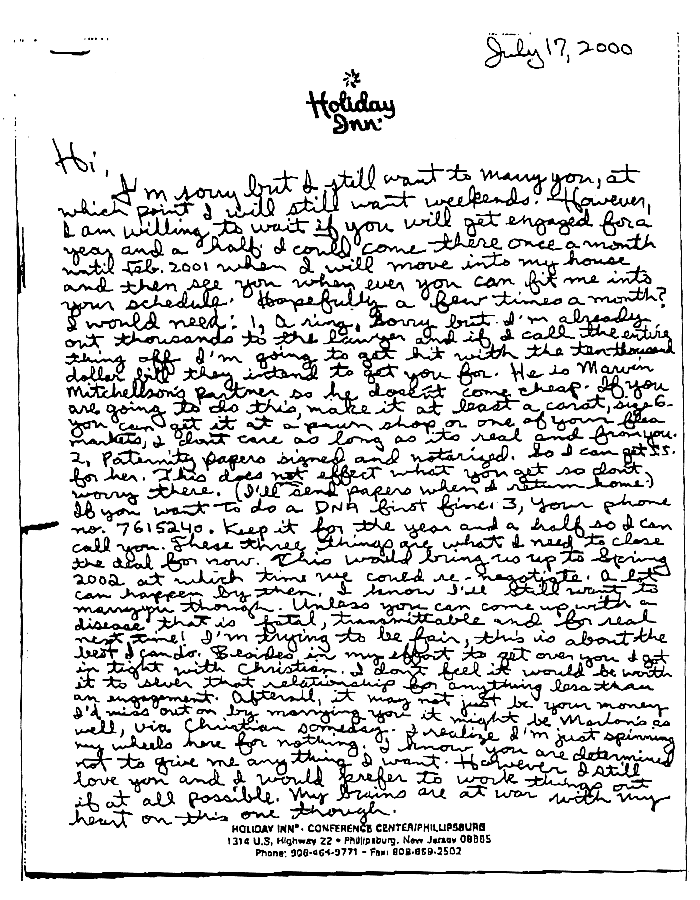 July 17, 2000
Holiday
Inn
Hi,
I'm sorry but I still want to marry you, at
which point I will still want weekends. However,
I am willing to wait if you will get engaged for a
year and a half. I could come there once a month
until Feb. 2001 when I will move into my house
and then see you when ever you can fit me into
your schedule. Hopefully a few times a month?
I would need: 1, a ring, sorry but I'm already
out thousands to the lawyer and if I call the entire
thing off I'm going to get hit with the ten thousand
dollar bill they intend to get you for. He is Marvin
Mitchellson's partner so he doesn't come cheap. If you
are going to do this, make it at least a carat, size 6-
you can get it at a pawn shop or one of your flea
markets, I don't care as long as its real and from you.
2, Paternity papers signed and notarized. So I can get SS.
for her. This does not effect what you get so don't
worry there. (I'll send papers when I return home.)
If you want to do a DNA first fine: 3, Your phone
no. 7615240. Keep it for the year and a half so I can
call you. These three things are what I need to close
the deal for now. This would bring us up to Spring
2002 at which time we could re-negotiate. A lot
can happen by then. I know I'll still want to
marry you though. Unless you can come up with a
disease that is fatal, transmittable and for real
next time! I'm trying to be fair, this is about the
best I can do. Besides in my effort to get over you I got
in tight with Christian. I don't feel it would be worth
it to sever that relationship for anything less than
an engagement. Afterall, it may not just be your money
I'd miss out on by marrying you it might be Marlon's as
well, via Christian someday. I realize I'm just spinning
my wheels here for nothing. I know you are determined
not to give me anything I want. However I still
love you and I would prefer to work things out
if at all possible. My brains are at war with my
heart on this one though.
HOLIDAY INN® · CONFERENCE CENTER/PHILLIPSBURG
1314 U.S. Highway 22 • Phillipsburg, New Jersey 08865
Phone: 908-454-9771 - Fax: 908-859-2502